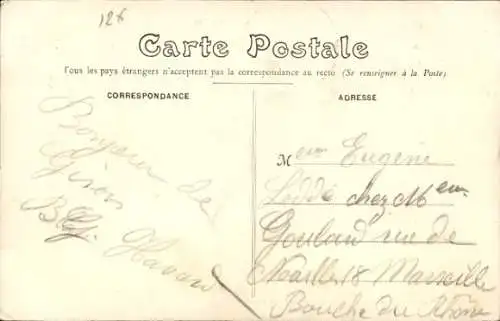 12 f
Carte Postale
Tous les pays étrangers n'acceptent pas la correspondance au recto (Se renseigner à la Poste)
CORRESPONDANCE
ADRESSE
Bonjour de
Giron
Meur Eugène
Loddé chez Meur
Gouland rue de
Noailles 18 Marseille
Bouche du Rhône